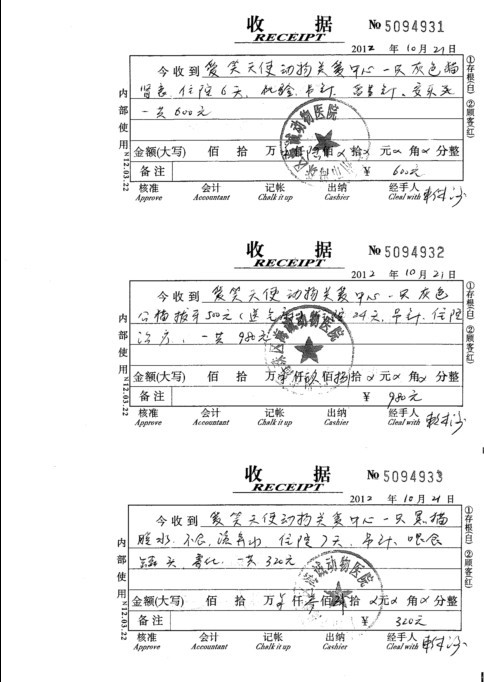 收 据
RECEIPT
No 5094931
2012 年 10 月 21 日
今收到 爱笑天使动物关爱中心一只灰色猫
肾衰、住院6天、化验、吊针、
一共600元
金额(大写) 佰 拾 万 仟 陆 佰 拾 元 角 分整
备注 ¥ 600元
核准 会计 记帐 出纳 经手人
Approve Accountant Chalk it up Cashier Cleal with
内部使用 N12.03.22
①存根(白) ②顾客(红)
诚动物医院
收 据
RECEIPT
No 5094932
2012 年 10 月 21 日
今收到 爱笑天使动物关爱中心一只灰色
公猫拔牙500元 24天、吊针、住院
治疗、一共980元
金额(大写) 佰 拾 万 仟 玖 佰 捌 拾 元 角 分整
备注 ¥ 980元
核准 会计 记帐 出纳 经手人
Approve Accountant Chalk it up Cashier Cleal with
内部使用 N12.03.22
①存根(白) ②顾客(红)
诚动物医院
收 据
RECEIPT
No 5094933
2012 年 10 月 21 日
今收到 爱笑天使动物关爱中心一只黑猫
住院7天、吊针、喂食
罐头、一共320元
金额(大写) 佰 拾 万 仟 叁 佰 拾 元 角 分整
备注 ¥ 320元
核准 会计 记帐 出纳 经手人
Approve Accountant Chalk it up Cashier Cleal with
内部使用 N12.03.22
①存根(白) ②顾客(红)
诚动物医院